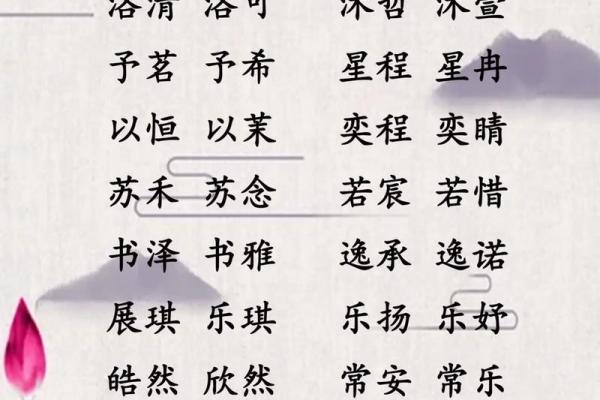 洛清 洛可 沐哲 沐萱
予茗 予希 星程 星冉
以恒 以茉 奕程 奕晴
苏禾 苏念 若宸 若惜
书泽 书雅 逸承 逸诺
展琪 乐琪 乐扬 乐妤
皓然 欣然 常安 常乐